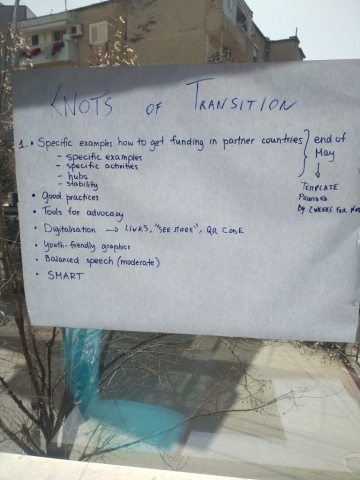 KNOTS OF TRANSITION
1. • Specific examples how to get funding in partner countries } end of May
- specific examples
- specific activities
- hubs
- stability
↓
TEMPLATE
PROVIDED
BY 2 WEEKS FOR
• Good practices
• Tools for advocacy
• Digitalisation → LINKS, "SEE MORE", QR CODE
• Youth-friendly graphics
• Balanced speech (moderate)
• SMART